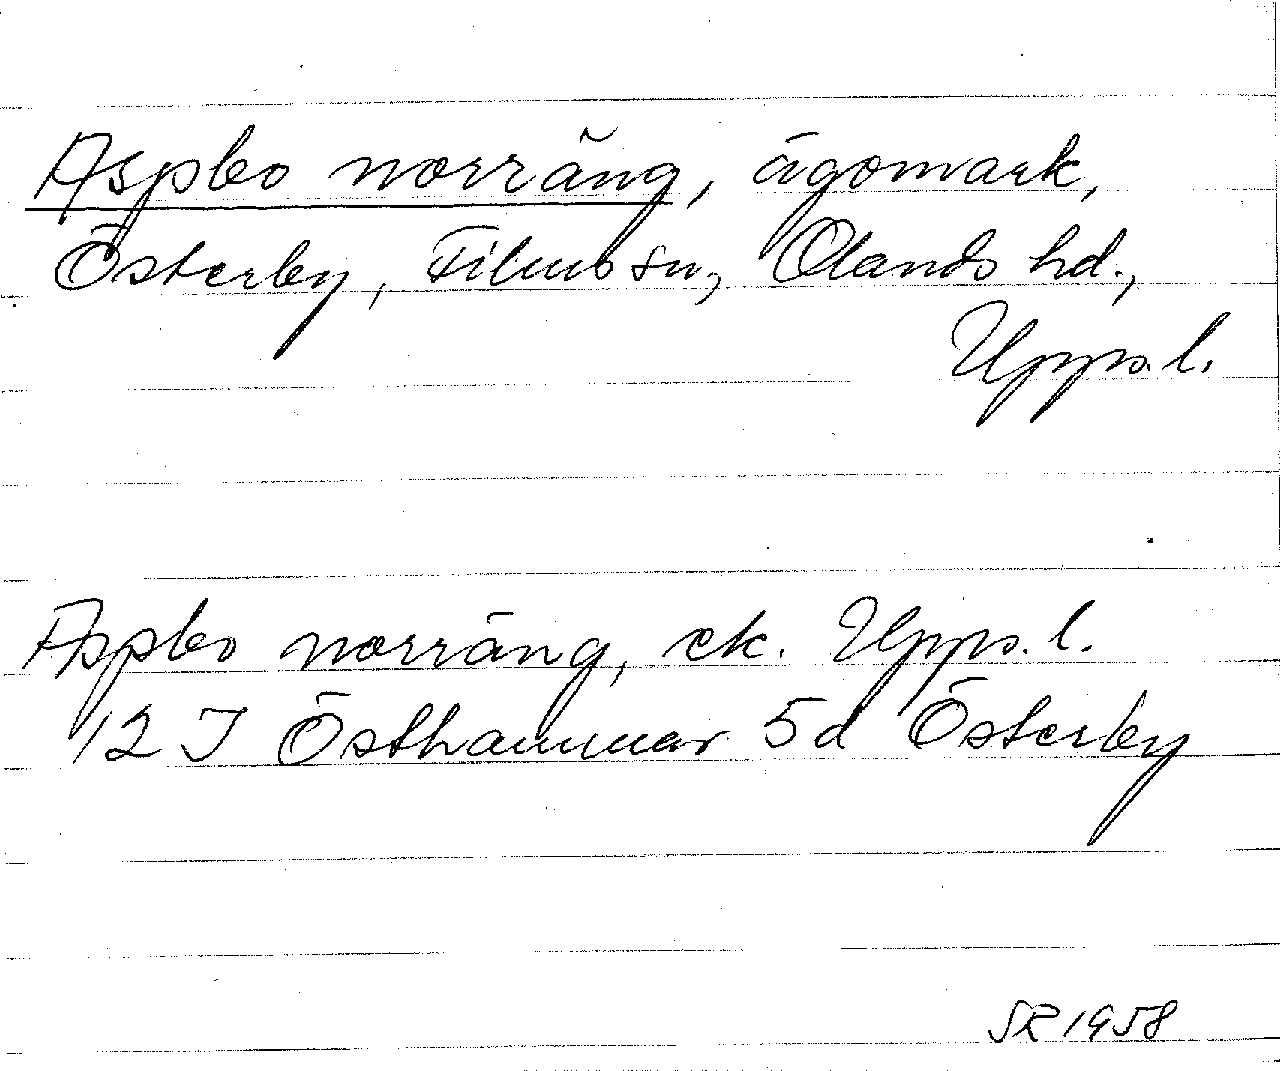 Aspbo norräng, ägomark,
Österby, Films sn, Olands hd.,
Upps. l.
Aspbo norräng, ek. Upps. l.
12 I Östhammar 5d Österby
SR 1958